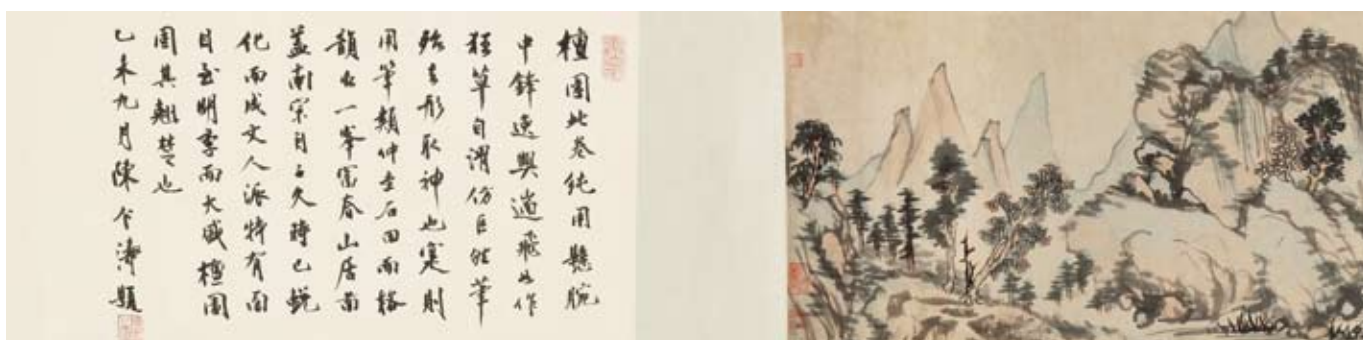 檀園此卷純用懸腕
中鋒逸興遄飛如作
狂草自謂仿巨然筆
殆去形取神也寔則
用筆類仲圭石田而格
韻如一峯富春山居
蓋南宗自子久時已蛻
化而成文人派特有面
目至明季而大盛檀園
固其翹楚也
乙未九月陳仁濤題